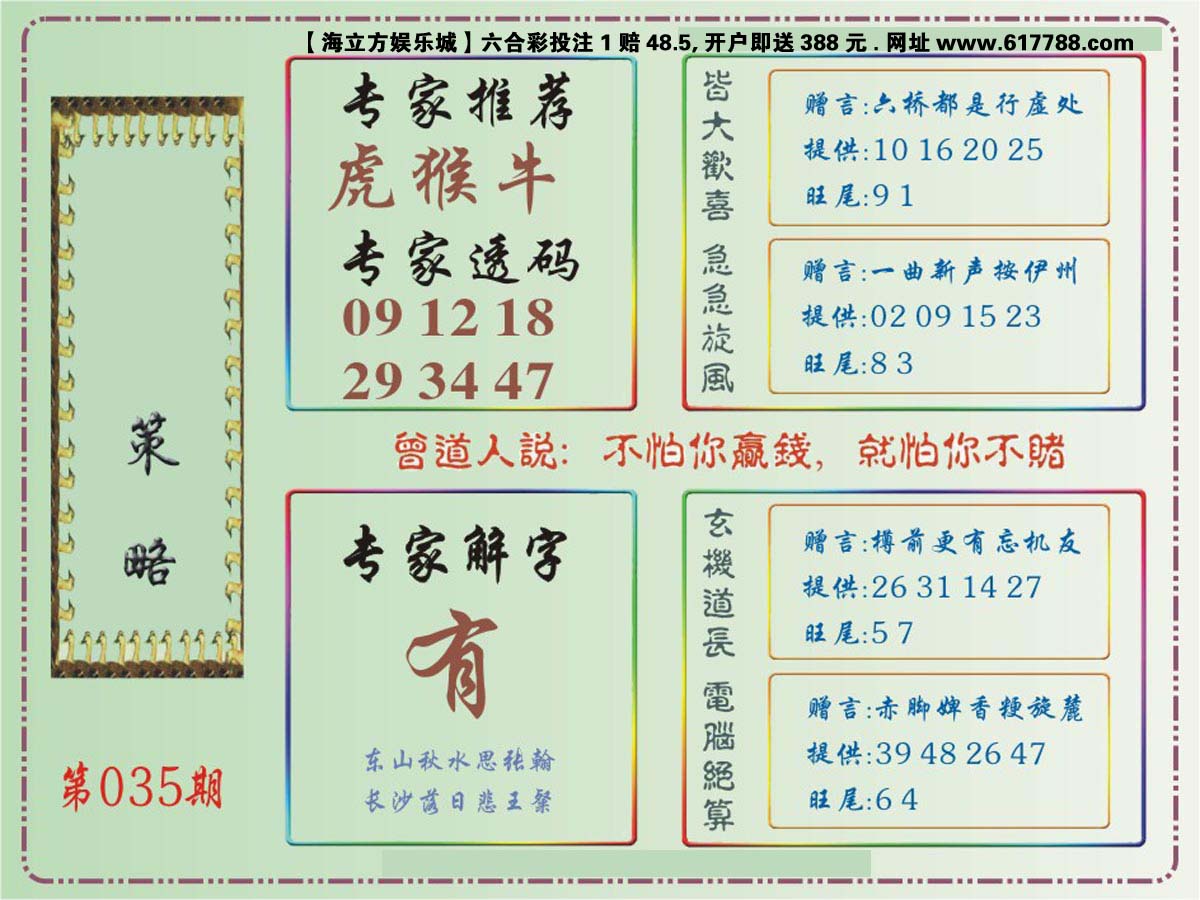 【海立方娱乐城】六合彩投注 1 赔 48.5, 开户即送 388 元 . 网址 www.617788.com
策略
第035期
专家推荐
虎猴牛
专家透码
09 12 18
29 34 47
皆大歡喜
赠言:六桥都是行虚处
提供:10 16 20 25
旺尾:9 1
急急旋風
赠言:一曲新声按伊州
提供:02 09 15 23
旺尾:8 3
曾道人説: 不怕你贏錢, 就怕你不賭
专家解字
有
东山秋水思张翰
长沙落日悲王粲
玄機道長
赠言:樽前更有忘机友
提供:26 31 14 27
旺尾:5 7
電腦絕算
赠言:赤脚婢香粳旋麓
提供:39 48 26 47
旺尾:6 4